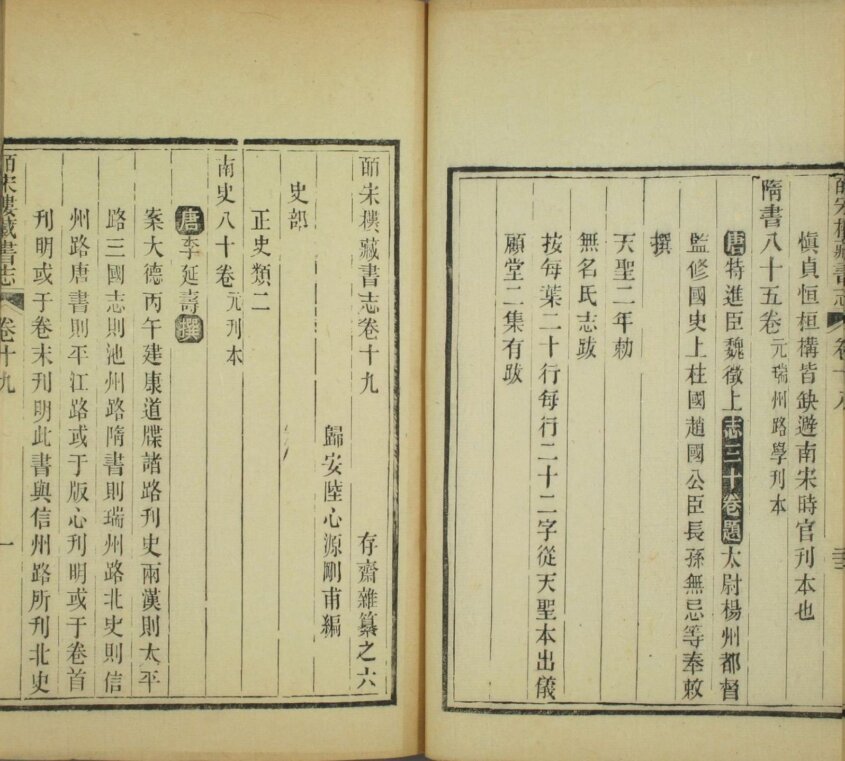 皕宋樓藏書志 卷十八
慎貞恒桓構皆缺避南宋時官刊本也
隋書八十五卷 元瑞州路學刊本
唐特進臣魏徵上志三十卷題太尉楊州都督
監修國史上柱國趙國公臣長孫無忌等奉敕
撰
天聖二年勅
無名氏志跋
按每葉二十行每行二十二字從天聖本出儀
顧堂二集有跋
皕宋樓藏書志卷十九 存齋雜纂之六
歸安陸心源剛甫編
史部
正史類二
南史八十卷 元刊本
唐李延壽撰
案大德丙午建康道牒諸路刊史兩漢則太平
路三國志則池州路隋書則瑞州路北史則信
州路唐書則平江路或于版心刊明或于卷首
刊明或于卷末刊明此書與信州路所刊北史
皕宋樓藏書志 卷十九 一